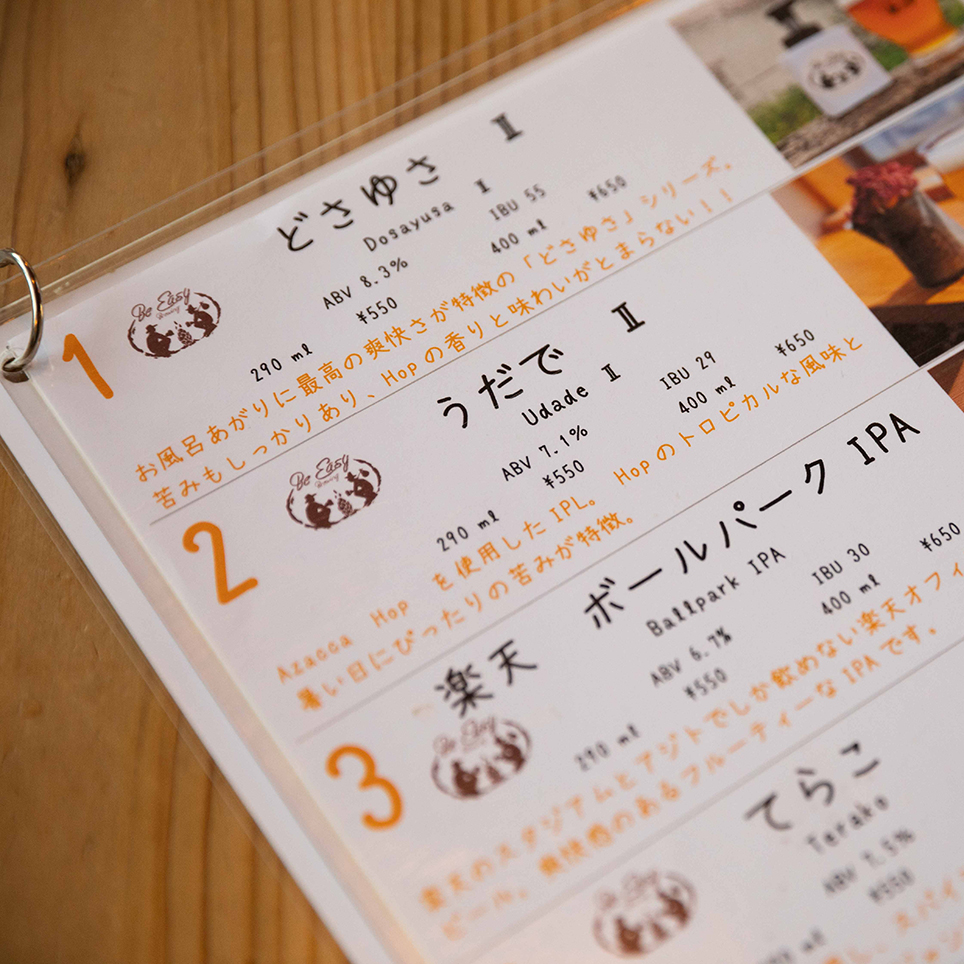 どさゆさ Ⅱ
Dosayusa Ⅱ
ABV 8.3% IBU 55
290 ml ¥550 400 ml ¥650
Be Easy
Brewing
1
お風呂あがりに最高の爽快さが特徴の「どさゆさ」シリーズ。
苦みもしっかりあり、Hopの香りと味わいがとまらない！！
うだで Ⅱ
Udade Ⅱ
ABV 7.1% IBU 29
290 ml ¥550 400 ml ¥650
Be Easy
Brewing
2
Azacca Hop を使用したIPL。 Hopのトロピカルな風味と
暑い日にぴったりの苦みが特徴。
楽天 ボールパーク IPA
Ballpark IPA
ABV 6.7% IBU 30
290 ml ¥550 400 ml ¥650
Be Easy
3
楽天のスタジアムとアジトでしか飲めない楽天オフィ
ビール。爽快感のあるフルーティーなIPAです。
てらこ
Terako
ABV 7.5%
ml ¥550
Be Easy